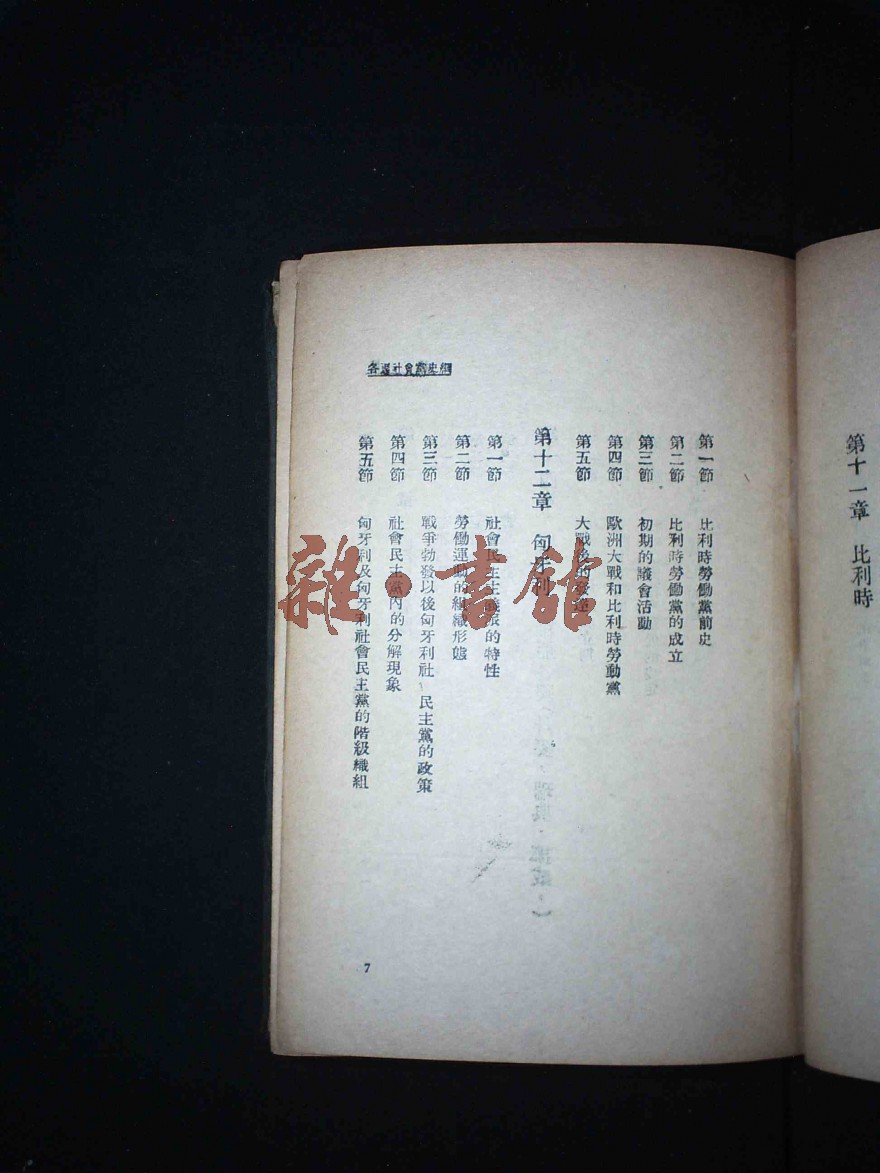 第十一章 比利時
各國社會黨史綱
第一節 比利時勞働黨前史
第二節 比利時勞働黨的成立
第三節 初期的議會活動
第四節 歐洲大戰和比利時勞動黨
第五節 大戰後的發達
第十二章 匈牙利
第一節 社會民主主義派的特性
第二節 勞働運動的組織形態
第三節 戰爭勃發以後匈牙利社 民主黨的政策
第四節 社會民主黨內的分解現象
第五節 匈牙利及匈牙利社會民主黨的階級織組
7
雜·書館